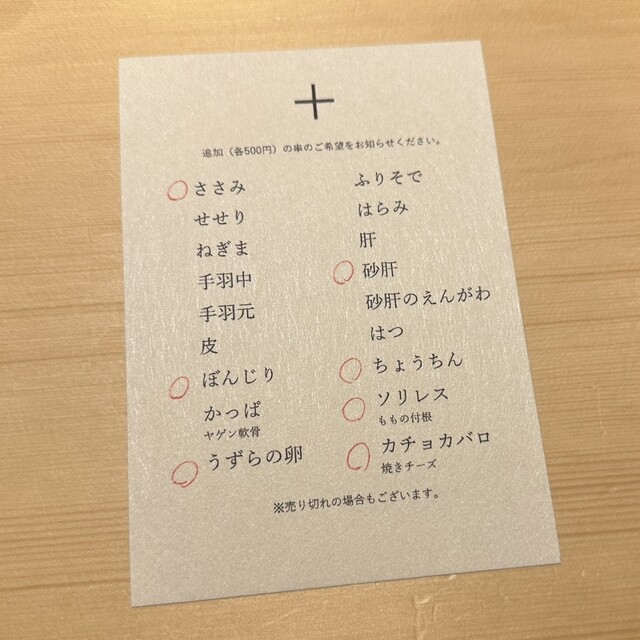 ＋
追加（各500円）の串のご希望をお知らせください。
ささみ
せせり
ねぎま
手羽中
手羽元
皮
ぼんじり
かっぱ
ヤゲン軟骨
うずらの卵
ふりそで
はらみ
肝
砂肝
砂肝のえんがわ
はつ
ちょうちん
ソリレス
ももの付根
カチョカバロ
焼きチーズ
※売り切れの場合もございます。